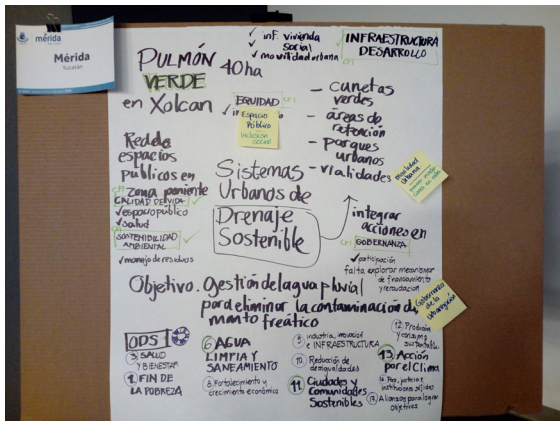 mérida
Mérida
Yucatán
PULMÓN
VERDE 40ha
en Xolcan
✓ inf. vivienda
✓ social
✓ movilidad urbana
✓ INFRAESTRUCTURA
DESARROLLO
EQUIDAD
Espacio
Público
Inclusión
social
- cunetas
verdes
- áreas de
retención
- parques
urbanos
- vialidades
Movilidad
Urbana
Red de
espacios
publicos en
zona poniente
CALIDAD DE VIDA
✓ espacio público
✓ salud
SOSTENIBILIDAD
AMBIENTAL
✓ manejo de residuos
Sistemas
Urbanos de
Drenaje
Sostenible
integrar
acciones en
GOBERNANZA
✓ participación
falta, explorar mecanismos
de financiamiento
y recaudación
Gobernanza
de la
Urbanización
Objetivo. Gestión del agua pluvial
para eliminar la contaminación de
manto freático
ODS
3 SALUD
Y BIENESTAR
1 FIN DE
LA POBREZA
6 AGUA
LIMPIA Y
SANEAMIENTO
8 Fortalecimiento y
crecimiento económico
9 industria, innovación
e INFRAESTRUCTURA
10 Reducción de
desigualdades
11 Ciudades y
Comunidades
Sostenibles
12 Producción
y consumo
sustentable
13 Acción
por el Clima
16 Paz, justicia e
instituciones sólidas
17 Alianzas para lograr
objetivos